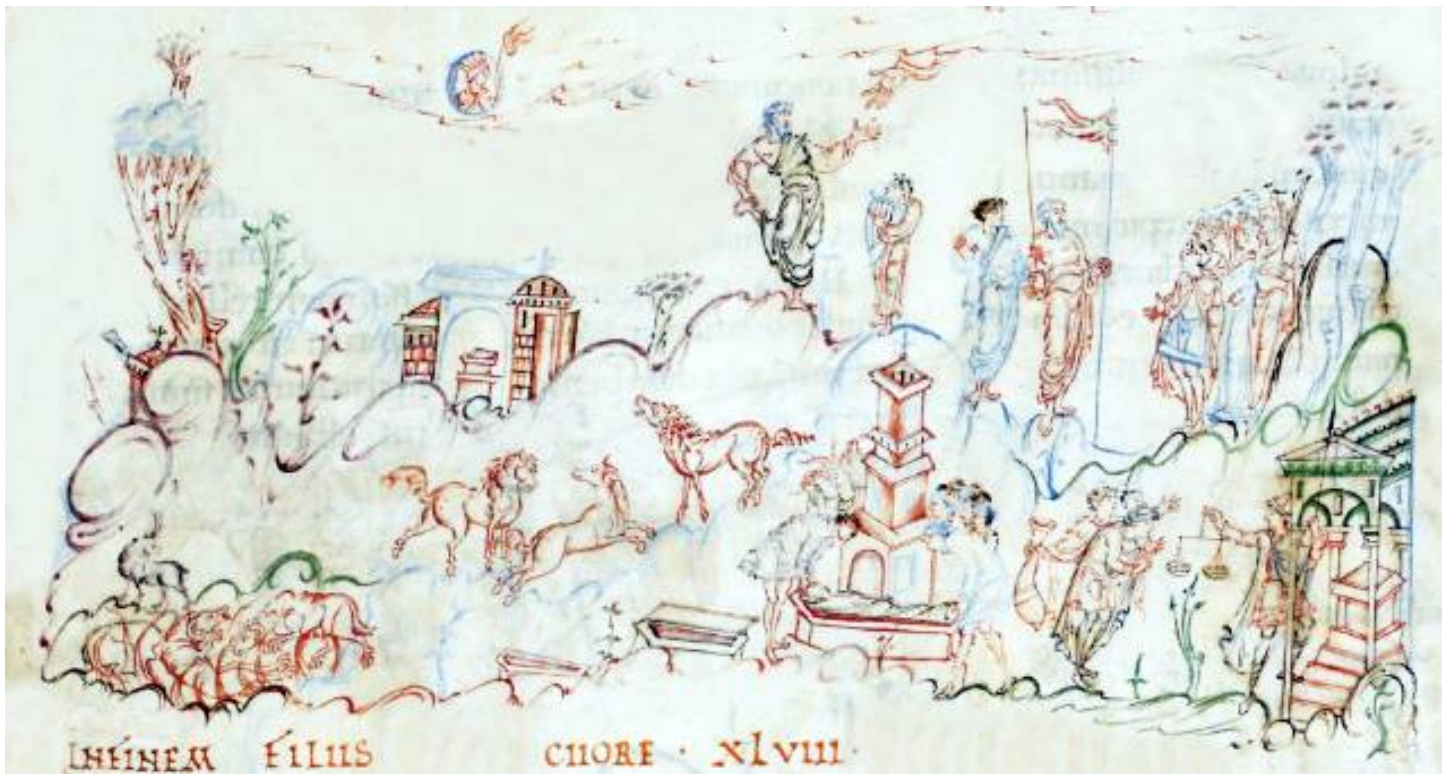 INFINEM FILIIS CHORE · XLVIII ·